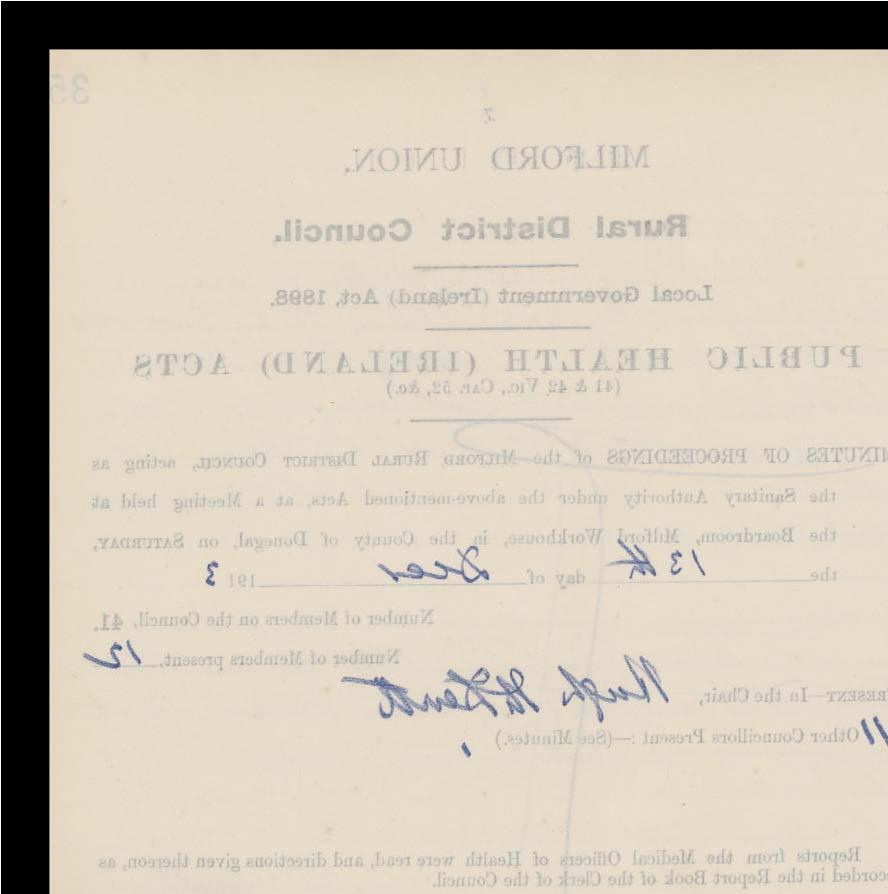 35
MILFORD UNION.
Rural District Council.
Local Government (Ireland) Act, 1898.
PUBLIC HEALTH (IRELAND) ACTS
(41 & 42 Vic., Cap. 52, &c.)
MINUTES OF PROCEEDINGS of the Milford Rural District Council, acting as
the Sanitary Authority under the above-mentioned Acts, at a Meeting held at
the Boardroom, Milford Workhouse, in the County of Donegal, on Saturday,
the 13th day of Decr 1913
Number of Members on the Council, 41.
Number of Members present, 12
PRESENT—In the Chair, Hugh
11 Other Councillors Present :—(See Minutes.)
Reports from the Medical Officers of Health were read, and directions given thereon, as
recorded in the Report Book of the Clerk of the Council.